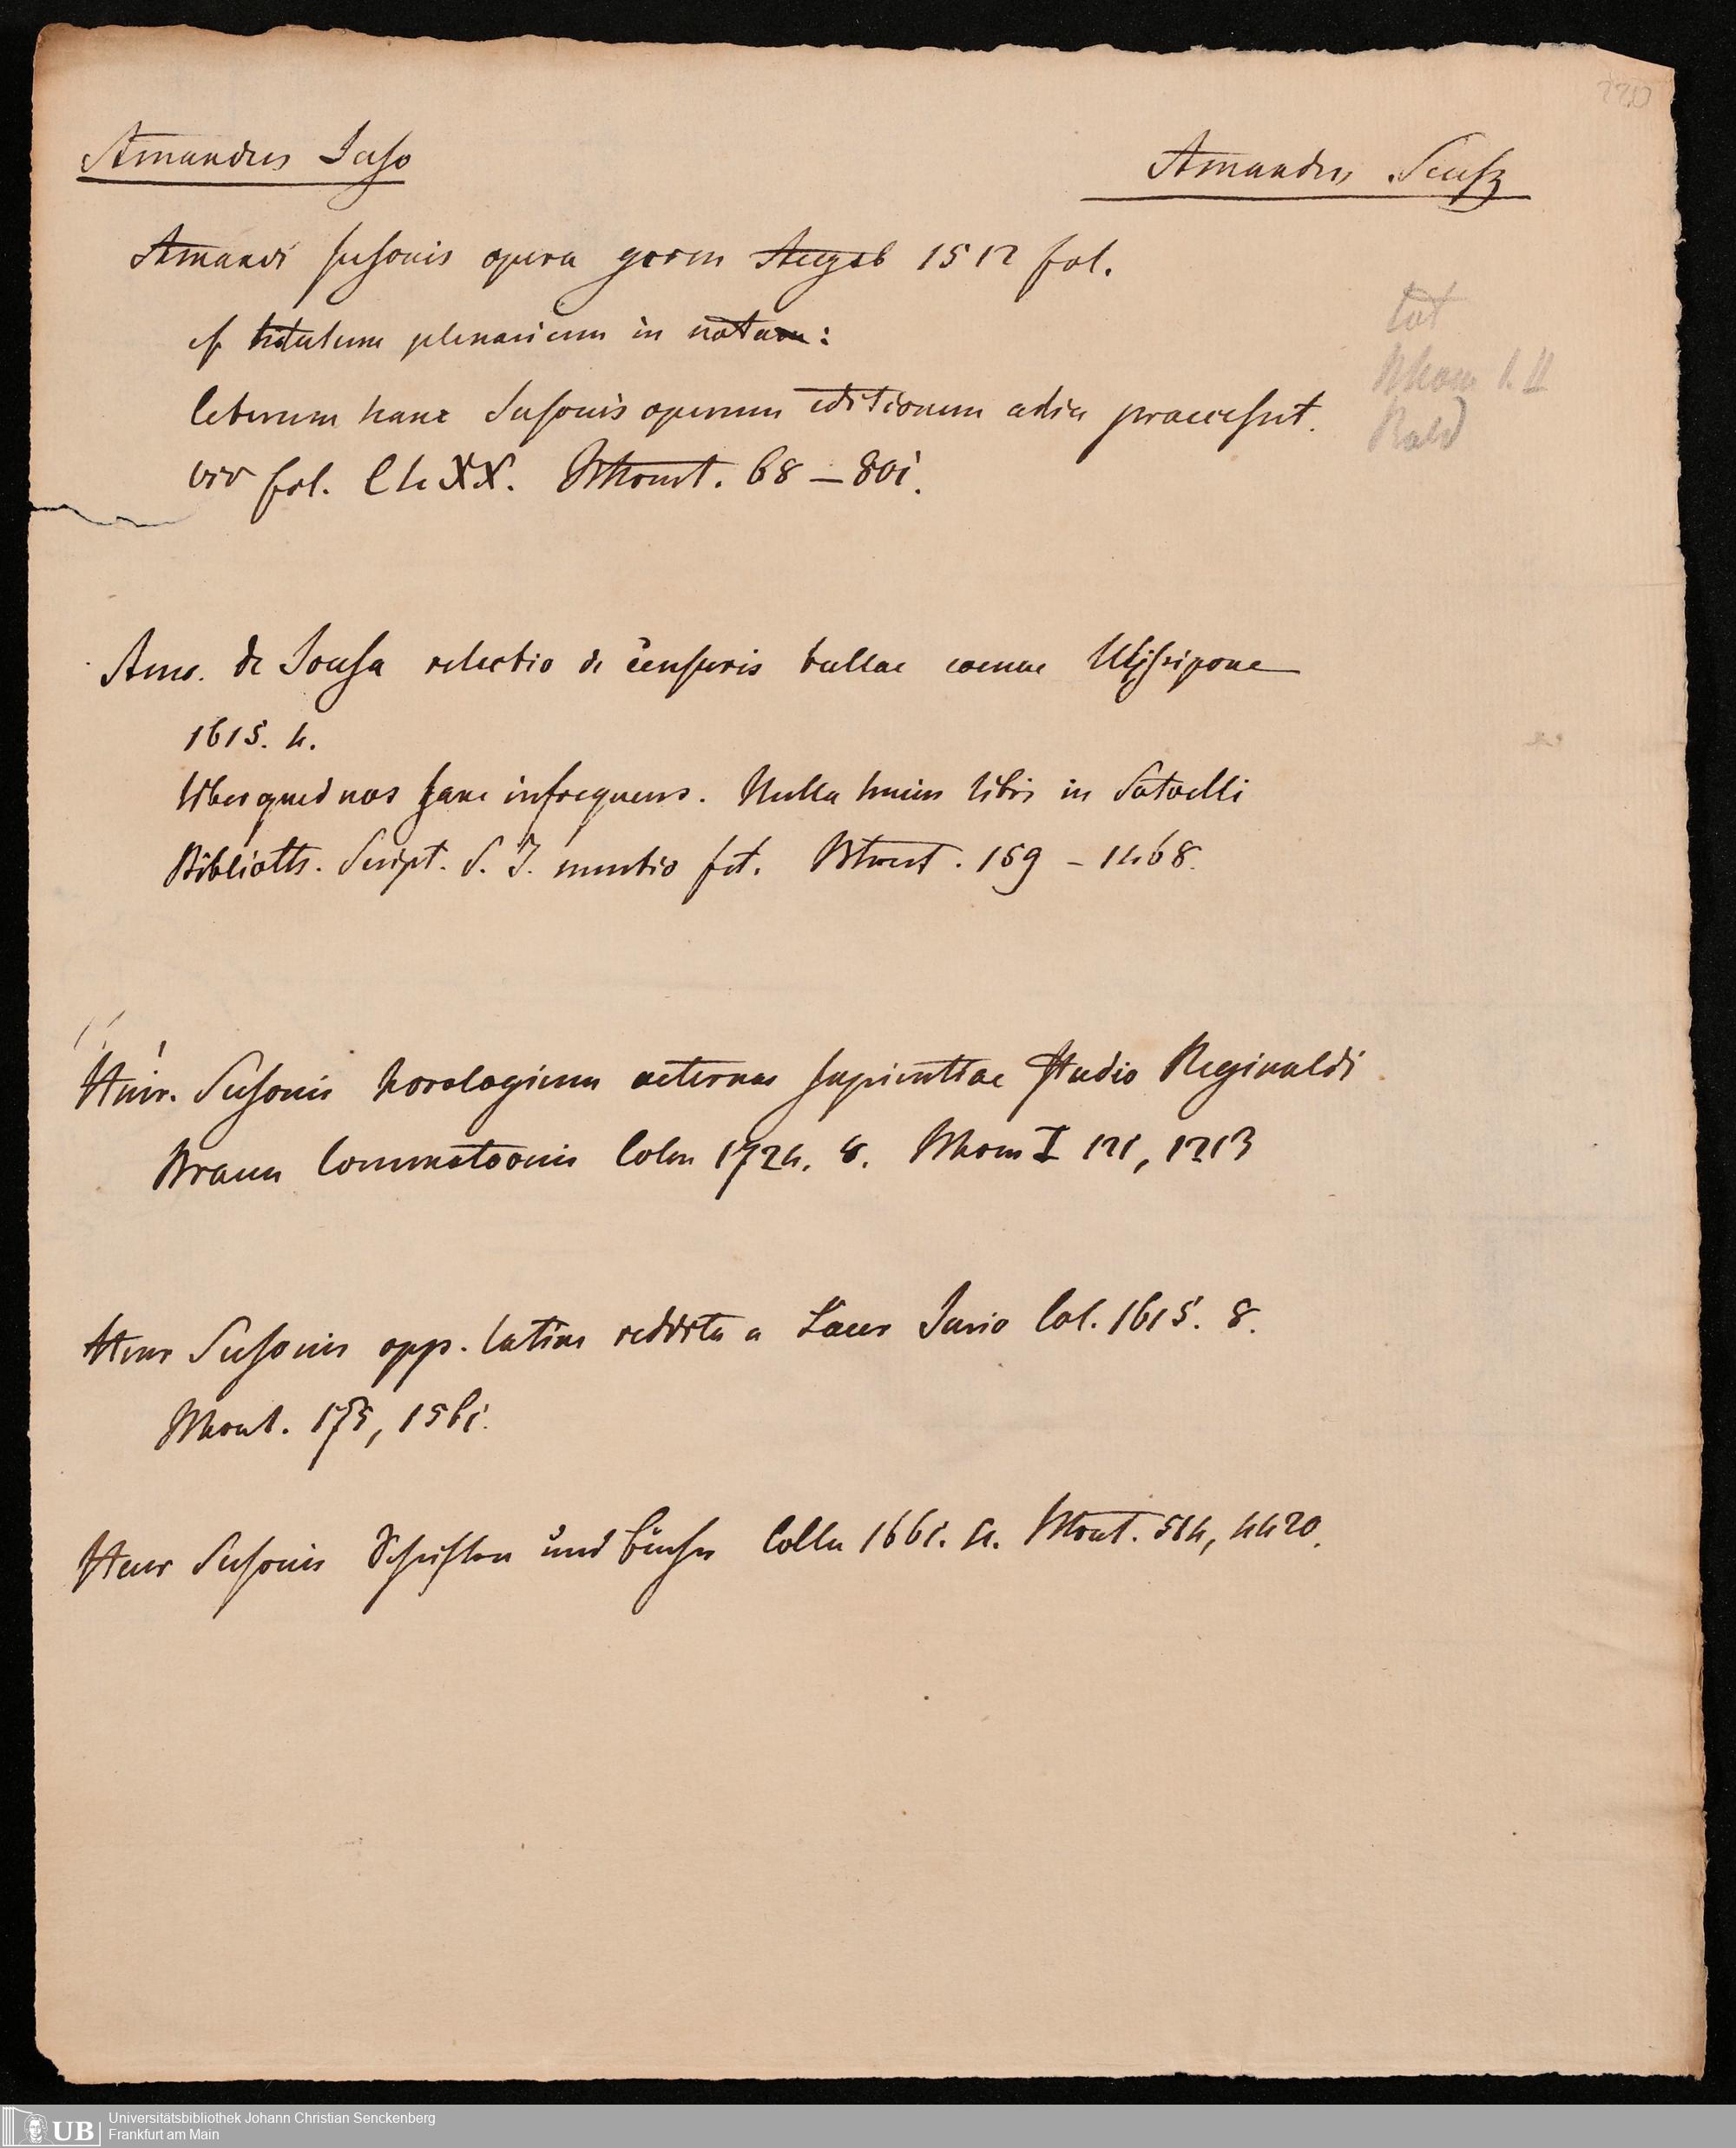 220
Amandus Suso
Amandus Seuß
Amandi Susonis opera germ Augsb 1512 fol.
cf titulum plenarium in notam:
Ceterum hanc Susonis operum editionem alia praecessit.
fol. Bhomt. 68 – 801.
tot
Bhom I. II
Ant. de Sousa relectio de censuris bullae coenae Ulissipone
1615. 4.
liber quidnos sane infrequens. Nulla huius libri in Sotvelli
Biblioth. Script. S. J. mentio fit. Bhomt. 159 – 1468.
Heinr. Susonis horologium aeternae sapientiae studio Reginaldi
Braun Commatoonis Coln 1724. 8. Bhom I 121, 1213
Henr Susonis opp. latine reddita a Laur Surio Col. 1615. 8.
Bhomt. 175, 1561.
Henr Susonis Schriften und bücher Colln 1661. 4. Bhomt. 514, 4420.
Universitätsbibliothek Johann Christian Senckenberg
UB
Frankfurt am Main